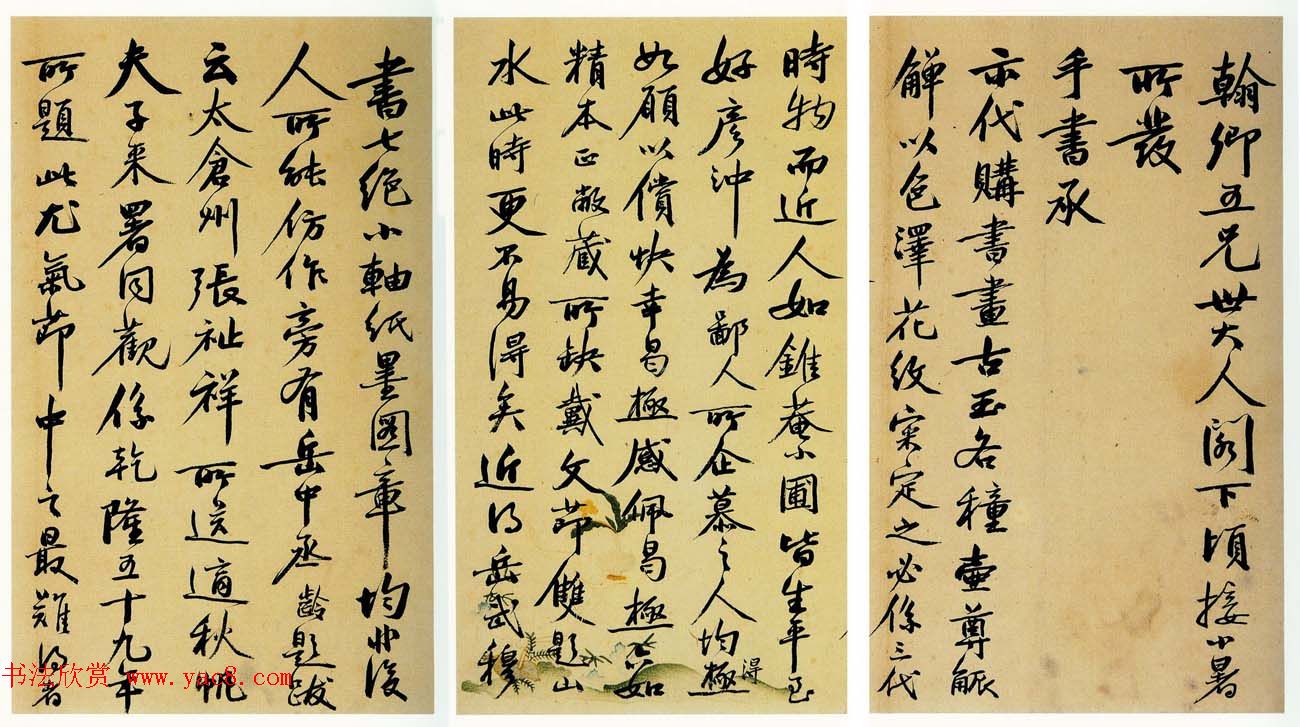 翰卿五兄世大人阁下頃接小暑
所發
手書承
示代購書畫古玉各種壷尊觚
觶以色澤花紋案定之必係三代
時物而近人如錐菴小圃皆生平至
好彦沖為鄙人所企慕之人均極得
如願以償快幸曷極感佩曷極如
精本正敝蔵所缺戴文節雙題山
水此時更不易得矣近得岳武穆
書七絶小軸紙墨圖章均非後
人所能仿作旁有岳中丞齡題跋
云太倉州張祉祥所送適秋帆
夫子来署同觀係乾隆五十九年
所題此尤氣節中之最難得者
书法欣赏 www.yac8.com